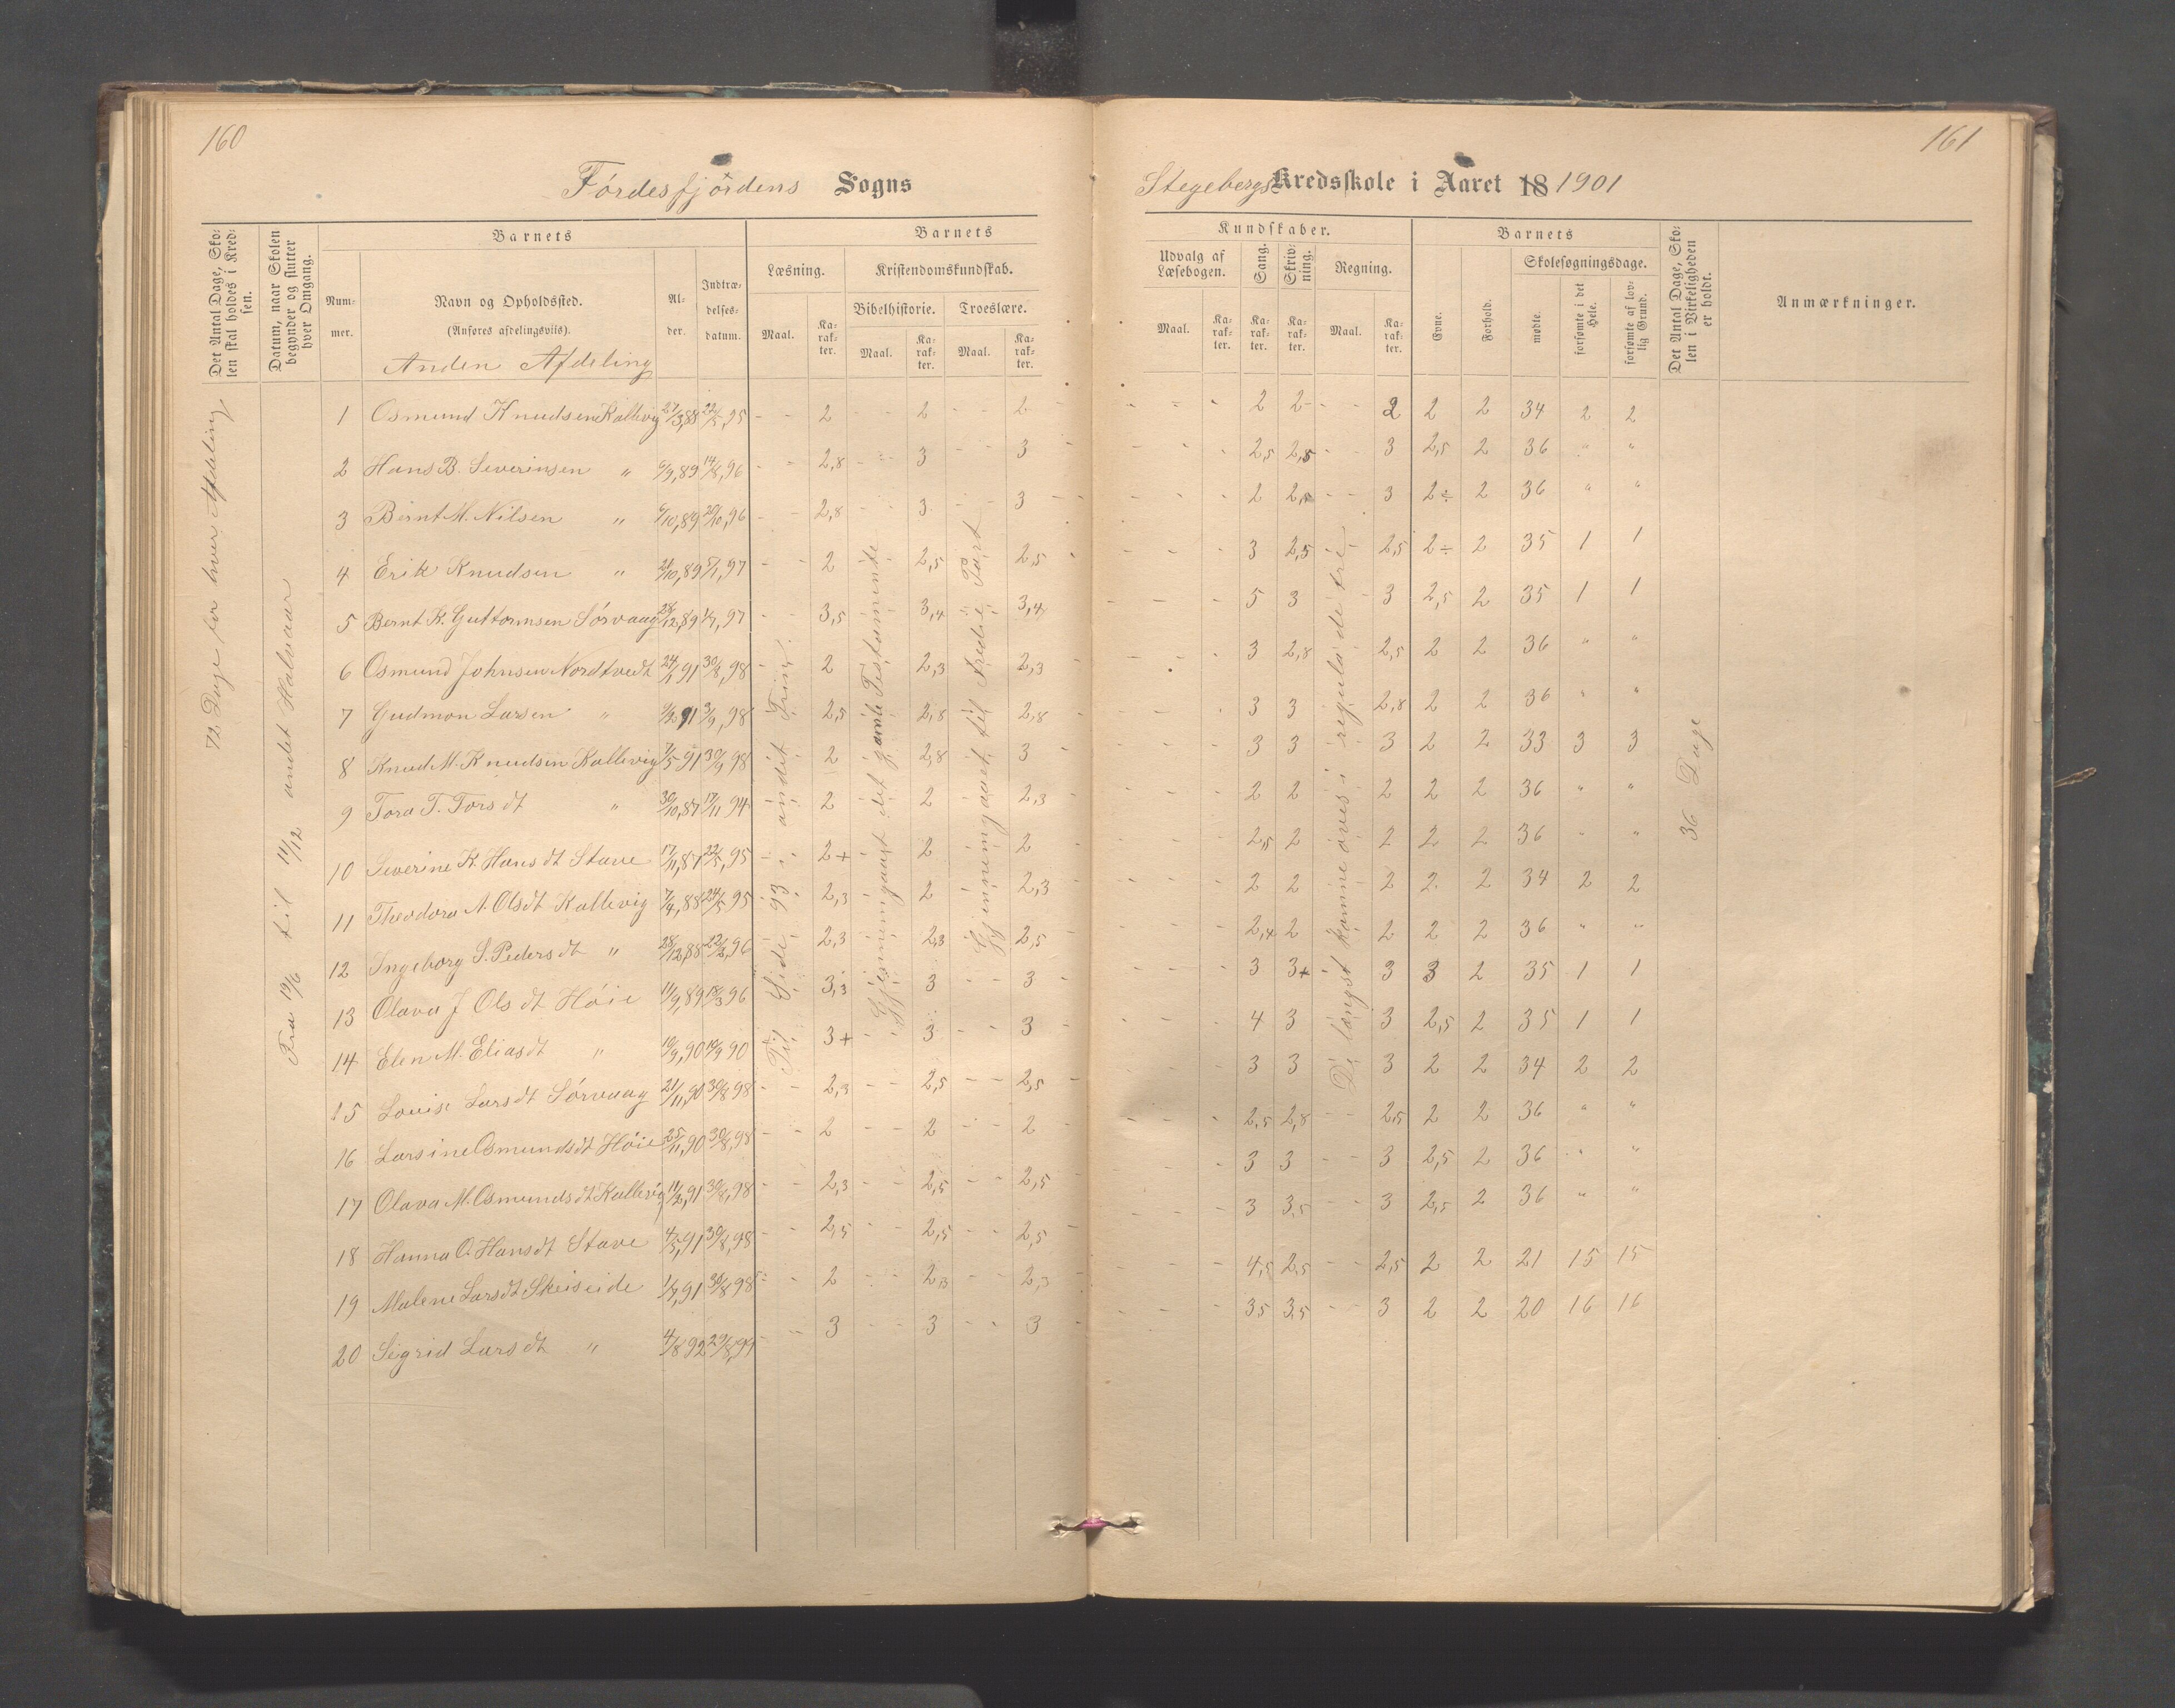 160
161
Fördesfjördens Sogns
Stegebergs Kredsskole i Aaret 18 1901
Det Antal Dage, Skolen skal holdes i Kredsen.
Datum, naar Skolen begynder og slutter hver Omgang.
Barnets
Nummer.
Navn og Opholdssted.
(Anføres afdelingsviis).
Alder.
Indtrædelsesdatum.
Barnets
Læsning.
Maal.
Karakter.
Kristendomskundskab.
Bibelhistorie.
Maal.
Karakter.
Troeslære.
Maal.
Karakter.
Kundskaber.
Udvalg af Læsebogen.
Maal.
Karakter.
Sang.
Karakter.
Skrivning.
Karakter.
Regning.
Maal.
Karakter.
Barnets
Evne.
Forhold.
Skolesøgningsdage.
mødte.
forsømte i det Hele.
forsømte af lovlig Grund.
Det Antal Dage, Skolen i Virkeligheden er holdt.
Anmærkninger.
Anden Afdeling
72 Dage for hver Afdeling
Fra 19/6 til 14/12 andet Halvaar
Til Side 93 i andet Trin
Gjennemgaaet det gamle Testamente
Gjennemgaaet til tredie Part
De længst komne øves i regula de tri
36 Dage
1 Osmund Knudsen Kallevig 27/3,88 22/5,95 - - 2 2 - - 2 - - - 2 2 - - 2 2 2 34 2 2
2 Hans B. Severinsen " 6/9,89 14/8,96 - - 2,8 - - 3 - - 3 - - 2,5 2,5 - - 3 2,5 2 36 " "
3 Bernt M. Nilsen " 6/10,89 20/10,96 - - 2,8 - - 3 - - 3 - - - 2 2,5 - - 3 2÷ 2 36 " "
4 Erik Knudsen " 21/10,89 5/1,97 - - 2 2,5 2,5 - - - 3 2,5 2,5 2÷ 2 35 1 1
5 Bernt K. Guttormsen Sörvaag 28/12,89 1/7,97 - - 3,5 3,4 3,4 - - - 5 3 3 2,5 2 35 1 1
6 Osmund Johnsen Nordtvedt 24/1 91 30/8,98 - 2 2,3 2,3 - - - 3 2,8 2,5 2 2 36 " "
7 Gudmon Larsen " 91 3/9,98 2,5 2,8 2,8 - - - 3 3 2,8 2 2 36 " "
8 Knud M. Knudsen Kallevig 7/5 91 30/9 98 2 2,8 3 - - - 3 3 3 2 2 33 3 3
9 Tora T. Torsdt " 30/10,87 17/11 94 2 2 2,3 - - - 2 2 2 2 2 36 " "
10 Severine K. Hansdt Stave 17/11,87 22/5,95 2+ 2 2 - - - 2,5 2 2 2 2 36 " "
11 Theodora A. Olsdt Kallevig 7/4,88 24/5 95 2,3 2 2,3 - - - 2 2 2 2 2 34 2 2
12 Ingeborg S. Pedersdt " 28/12,88 22/2,96 2,3 2,3 2,5 - - - 2,4 2 2 2 2 36 " "
13 Olava J Olsdt Höie 11/9,89 18/3 96 3,3 3 3 - - - 3 3+ 3 3 2 35 1 1
14 Elen M. Eliasdt " 10/9,90 19/9 90 3+ 3 3 - - - 4 3 3 2,5 2 35 1 1
15 Lovise Larsdt Sörvaag 21/11,90 30/8 98 - - 2,3 - - 2,5 - - 2,5 - - - 3 3 3 2 2 34 2 2
16 Larsine Osmundsdt Höie 25/11,90 30/8,98 - - 2 - - 2 - - 2 - - - 2,5 2,8 - - 2,5 2 2 36 " "
17 Olava M. Osmundsdt Kallevig 11/2,91 30/8,98 - - 2,3 - - 2,5 - - 2,5 - - - 3 3 - - 3 2,5 2 36 " "
18 Hanna O. Hansdt Stave 4/5,91 30/8,98 - - 2,5 - - 2,5 - - 2,5 - - - 3 3,5 - - 3 2,5 2 36 " "
19 Malene Larsdt Skeiseide 1/7,91 30/8 98 - - 2 - - 2,3 - - 2,3 - - - 4,5 2,5 - - 2,5 2 2 21 15 15
20 Sigrid Larsdt " 4/8 92 29/8,99 - - 3 - - 3 - - 3 - - - 3,5 3,5 - - 3 2 2 20 16 16